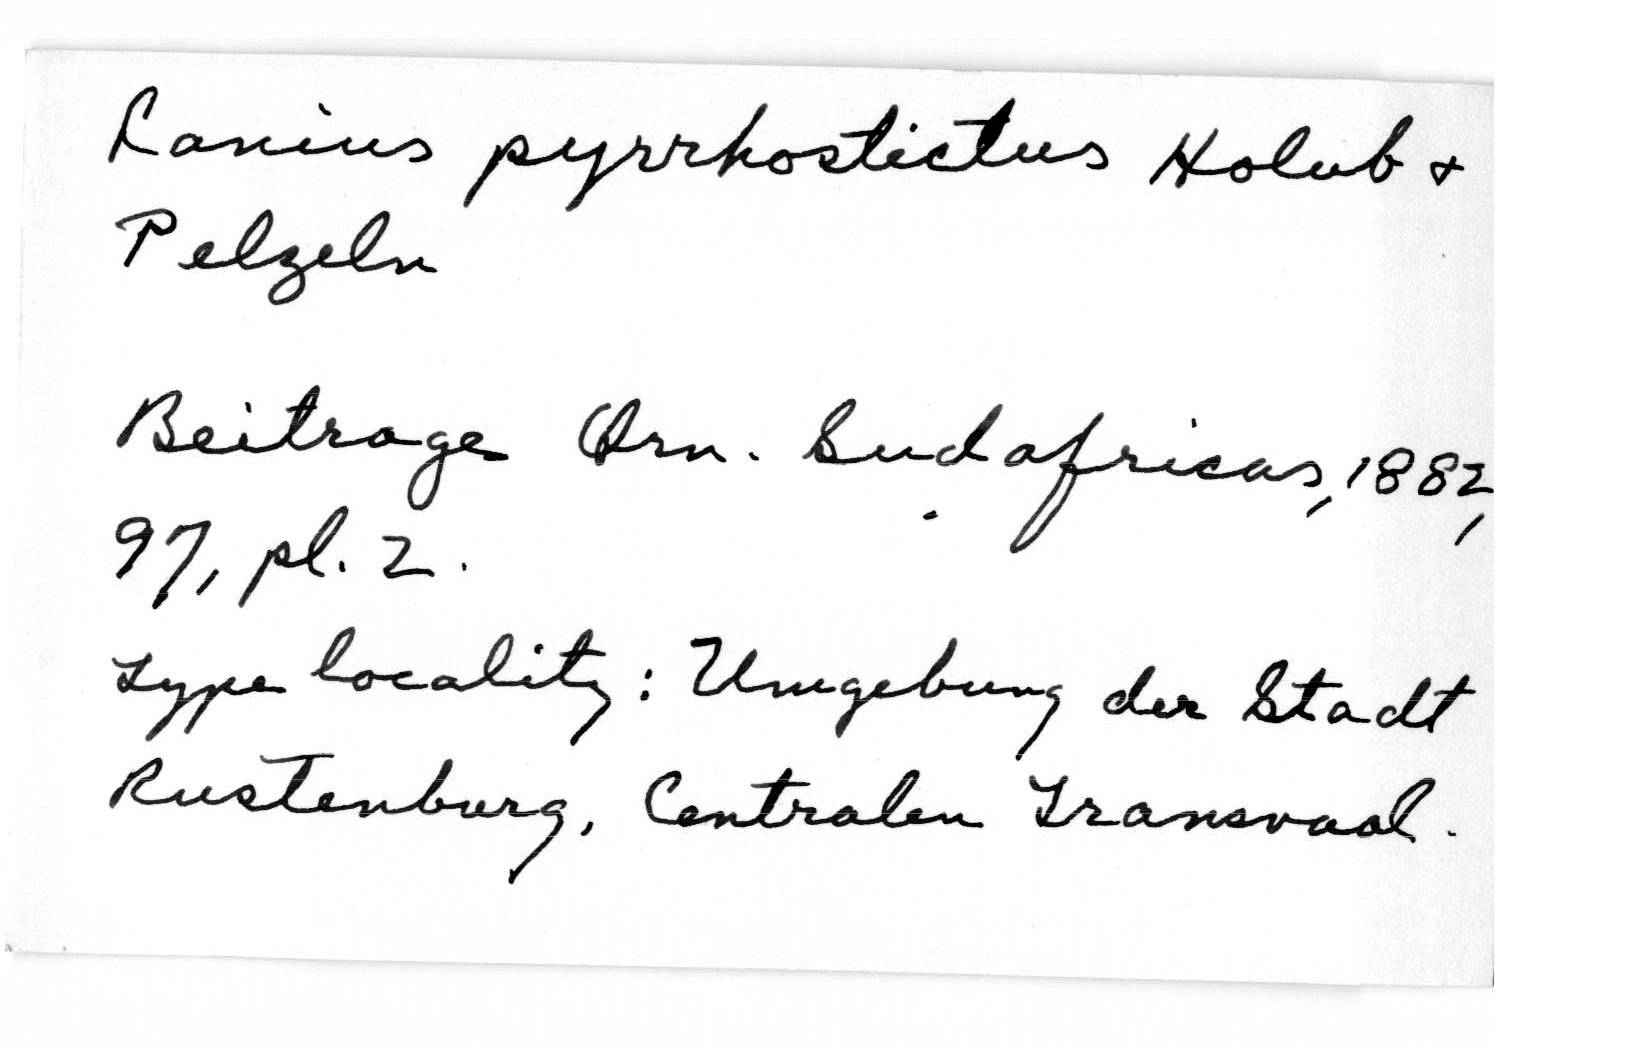 Lanius pyrrhostictus Holub &
Pelzeln
Beitrage Orn. Sudafricas, 1882,
97, pl. 2.
Type locality: Umgebung der Stadt
Rustenburg, Centralen Transvaal.